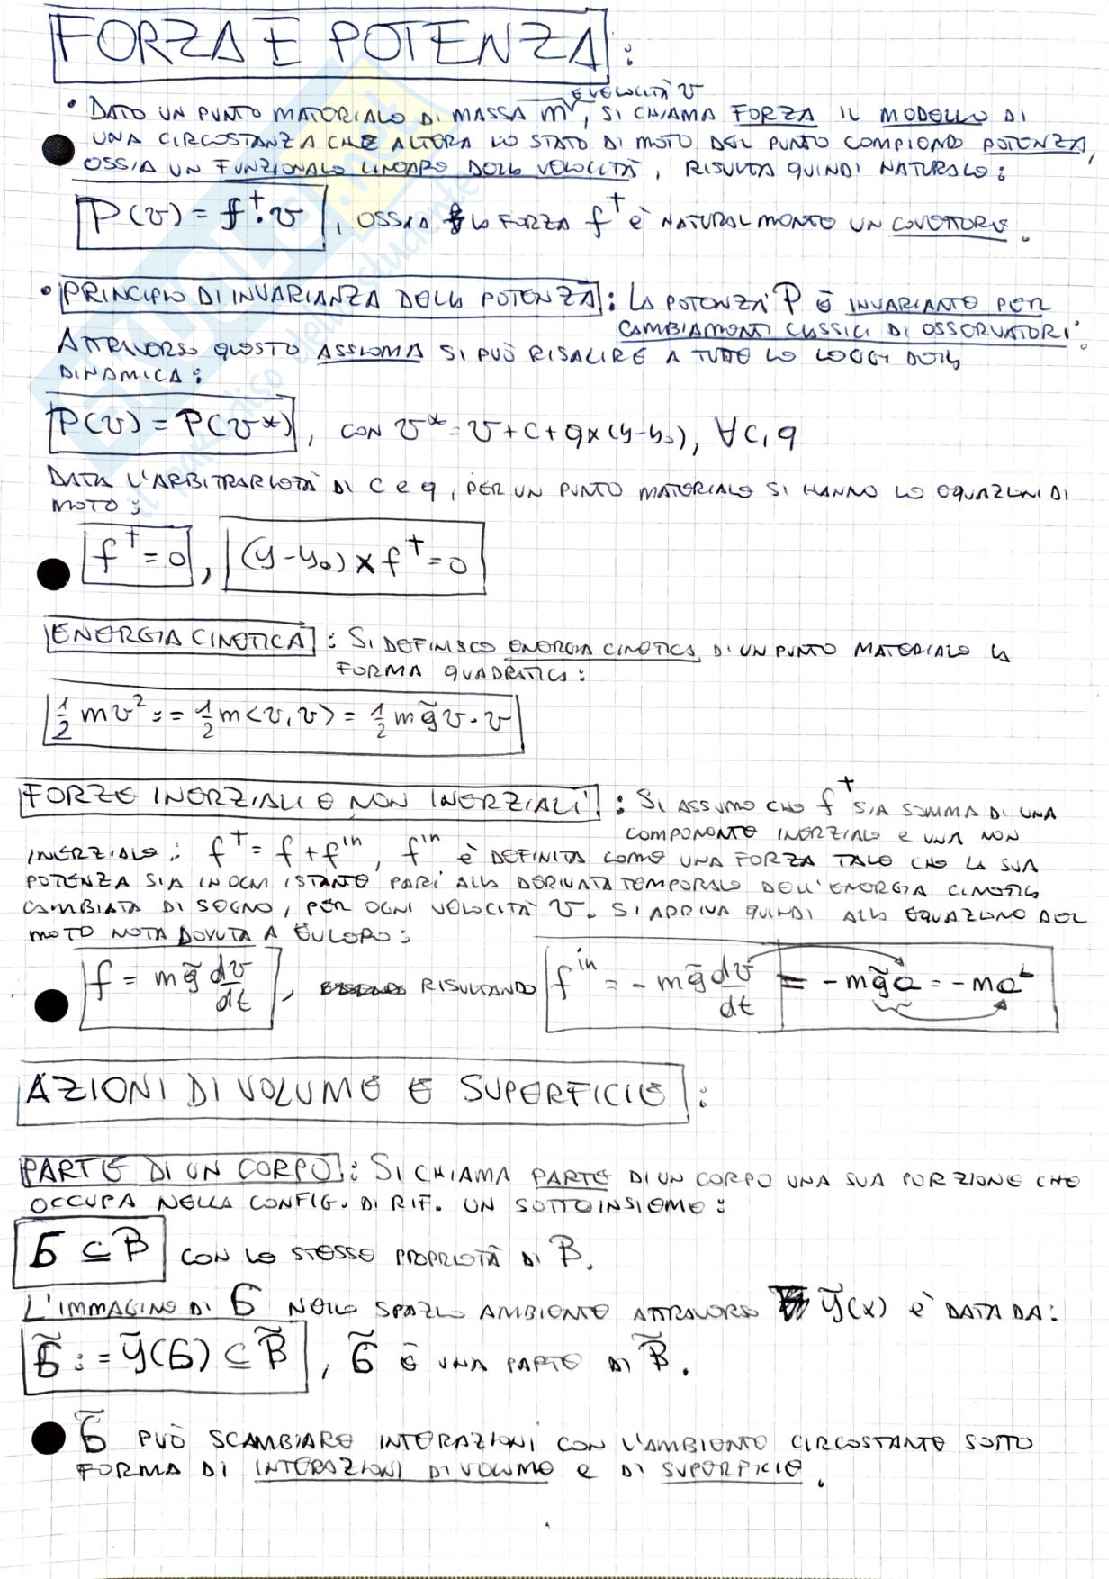 FORZA E POTENZA:
E VELOCITÀ v
• DATO UN PUNTO MATERIALE DI MASSA m, SI CHIAMA FORZA IL MODELLO DI
UNA CIRCOSTANZA CHE ALTERA LO STATO DI MOTO DEL PUNTO COMPIENDO POTENZA,
OSSIA UN FUNZIONALE LINEARE DELLA VELOCITÀ, RISULTA QUINDI NATURALE:
P(v) = f⁺·v, OSSIA LA FORZA f⁺ È NATURALMENTE UN COVETTORE.
• PRINCIPIO DI INVARIANZA DELLA POTENZA: LA POTENZA P È INVARIANTE PER
CAMBIAMENTI CLASSICI DI OSSERVATORI.
ATTRAVERSO QUESTO ASSIOMA SI PUÒ RISALIRE A TUTTE LE LEGGI DELLA
DINAMICA:
P(v) = P(v*), CON v* = v + c + q×(y-y₀), ∀c,q
DATA L'ARBITRARIETÀ DI c e q, PER UN PUNTO MATERIALE SI HANNO LE EQUAZIONI DI
MOTO:
f⁺ = 0, (y-y₀) × f⁺ = 0
ENERGIA CINETICA: SI DEFINISCE ENERGIA CINETICA DI UN PUNTO MATERIALE LA
FORMA QUADRATICA:
½ mv² := ½ m<v,v> = ½ m g̃ v·v
FORZE INERZIALI E NON INERZIALI: SI ASSUME CHE f⁺ SIA SOMMA DI UNA
COMPONENTE INERZIALE E UNA NON
INERZIALE: f⁺ = f + fⁱⁿ, fⁱⁿ È DEFINITA COME UNA FORZA TALE CHE LA SUA
POTENZA SIA IN OGNI ISTANTE PARI ALLA DERIVATA TEMPORALE DELL'ENERGIA CINETICA
CAMBIATA DI SEGNO, PER OGNI VELOCITÀ v. SI ARRIVA QUINDI ALLA EQUAZIONE DEL
MOTO NOTA DOVUTA A EULERO:
f = m g̃ dv/dt, RISULTANDO fⁱⁿ = -m g̃ dv/dt = -m g̃ a = -m a♭
AZIONI DI VOLUME E SUPERFICIE:
PARTE DI UN CORPO: SI CHIAMA PARTE DI UN CORPO UNA SUA PORZIONE CHE
OCCUPA NELLA CONFIG. DI RIF. UN SOTTOINSIEME:
б ⊆ B CON LE STESSE PROPRIETÀ DI B.
L'IMMAGINE DI б NELLO SPAZIO AMBIENTE ATTRAVERSO ỹ(x) È DATA DA:
б̃ := ỹ(б) ⊆ B̃, б̃ È UNA PARTE DI B̃.
б̃ PUÒ SCAMBIARE INTERAZIONI CON L'AMBIENTE CIRCOSTANTE SOTTO
FORMA DI INTERAZIONI DI VOLUME E DI SUPERFICIE.